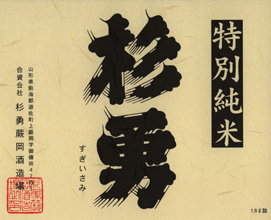 特別純米
杉勇
すぎいさみ
山形県飽海郡遊佐町上蕨岡字御備所47
合資会社 杉勇蕨岡酒造場
1.8ℓ詰